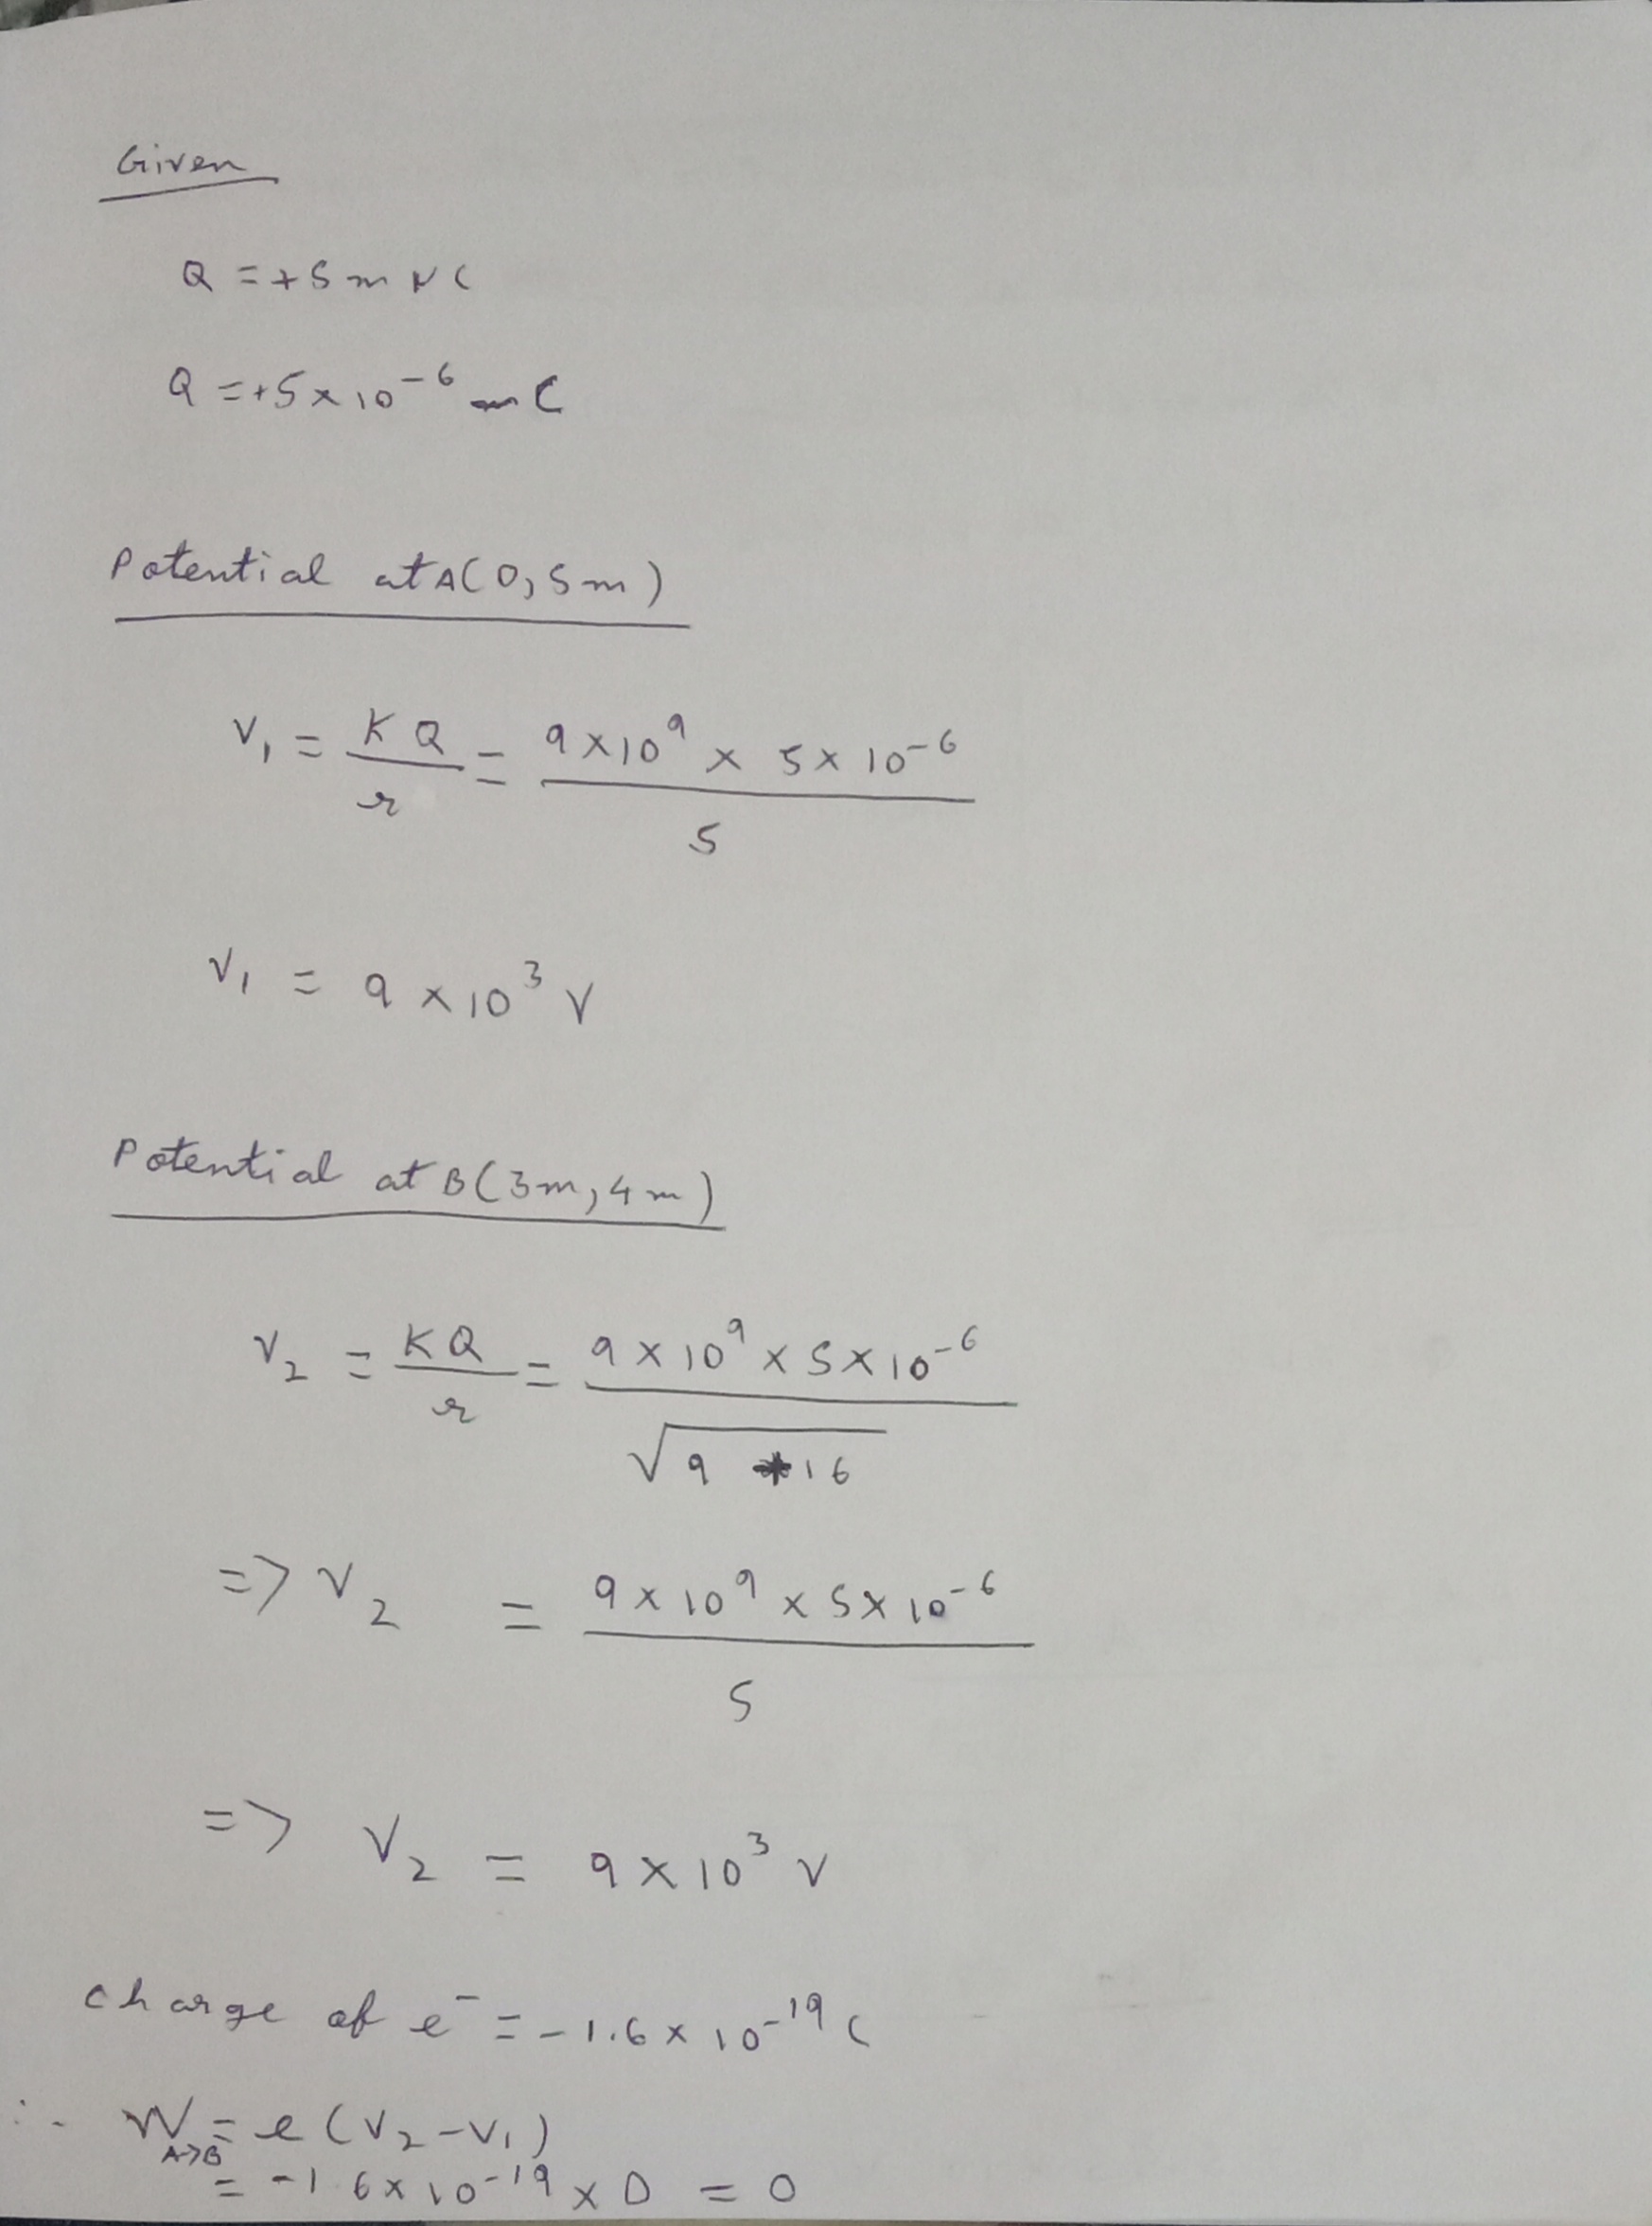 Given
Q = +5 m μC
Q = +5 × 10⁻⁶ m C
Potential at A(0, 5m)
V₁ = KQ/r = 9×10⁹ × 5×10⁻⁶ / 5
V₁ = 9 × 10³ V
Potential at B(3m, 4m)
V₂ = KQ/r = 9×10⁹ × 5×10⁻⁶ / √(9 + 16)
=> V₂ = 9×10⁹ × 5×10⁻⁶ / 5
=> V₂ = 9×10³ V
charge of e⁻ = -1.6 × 10⁻¹⁹ C
∴ W A→B = e(V₂ - V₁)
= -1.6×10⁻¹⁹ × 0 = 0